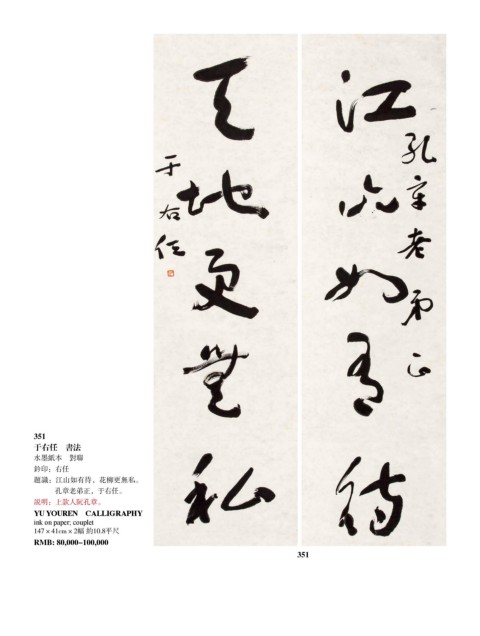 江山如有待
孔章老弟正
天地更無私
于右任
351
351
于右任　書法
水墨紙本　對聯
鈐印：右任
題識：江山如有待，花柳更無私。
孔章老弟正，于右任。
說明：上款人阮孔章。
YU YOUREN CALLIGRAPHY
ink on paper; couplet
147 × 41cm × 2幅 約10.8平尺
RMB: 80,000–100,000